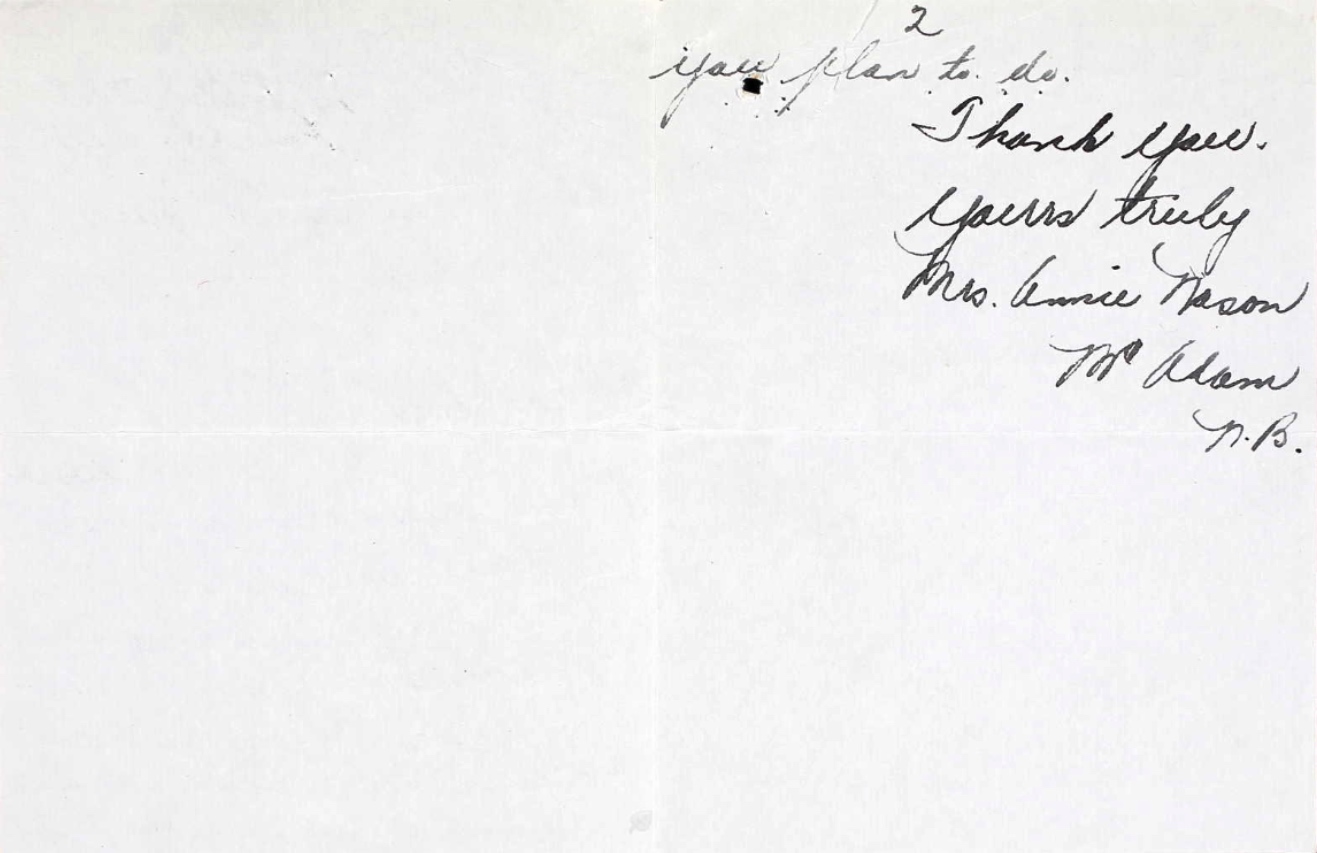 2
you plan to do.
Thank you.
Yours truly
Mrs. Annie Nason
Mc Adam
N.B.